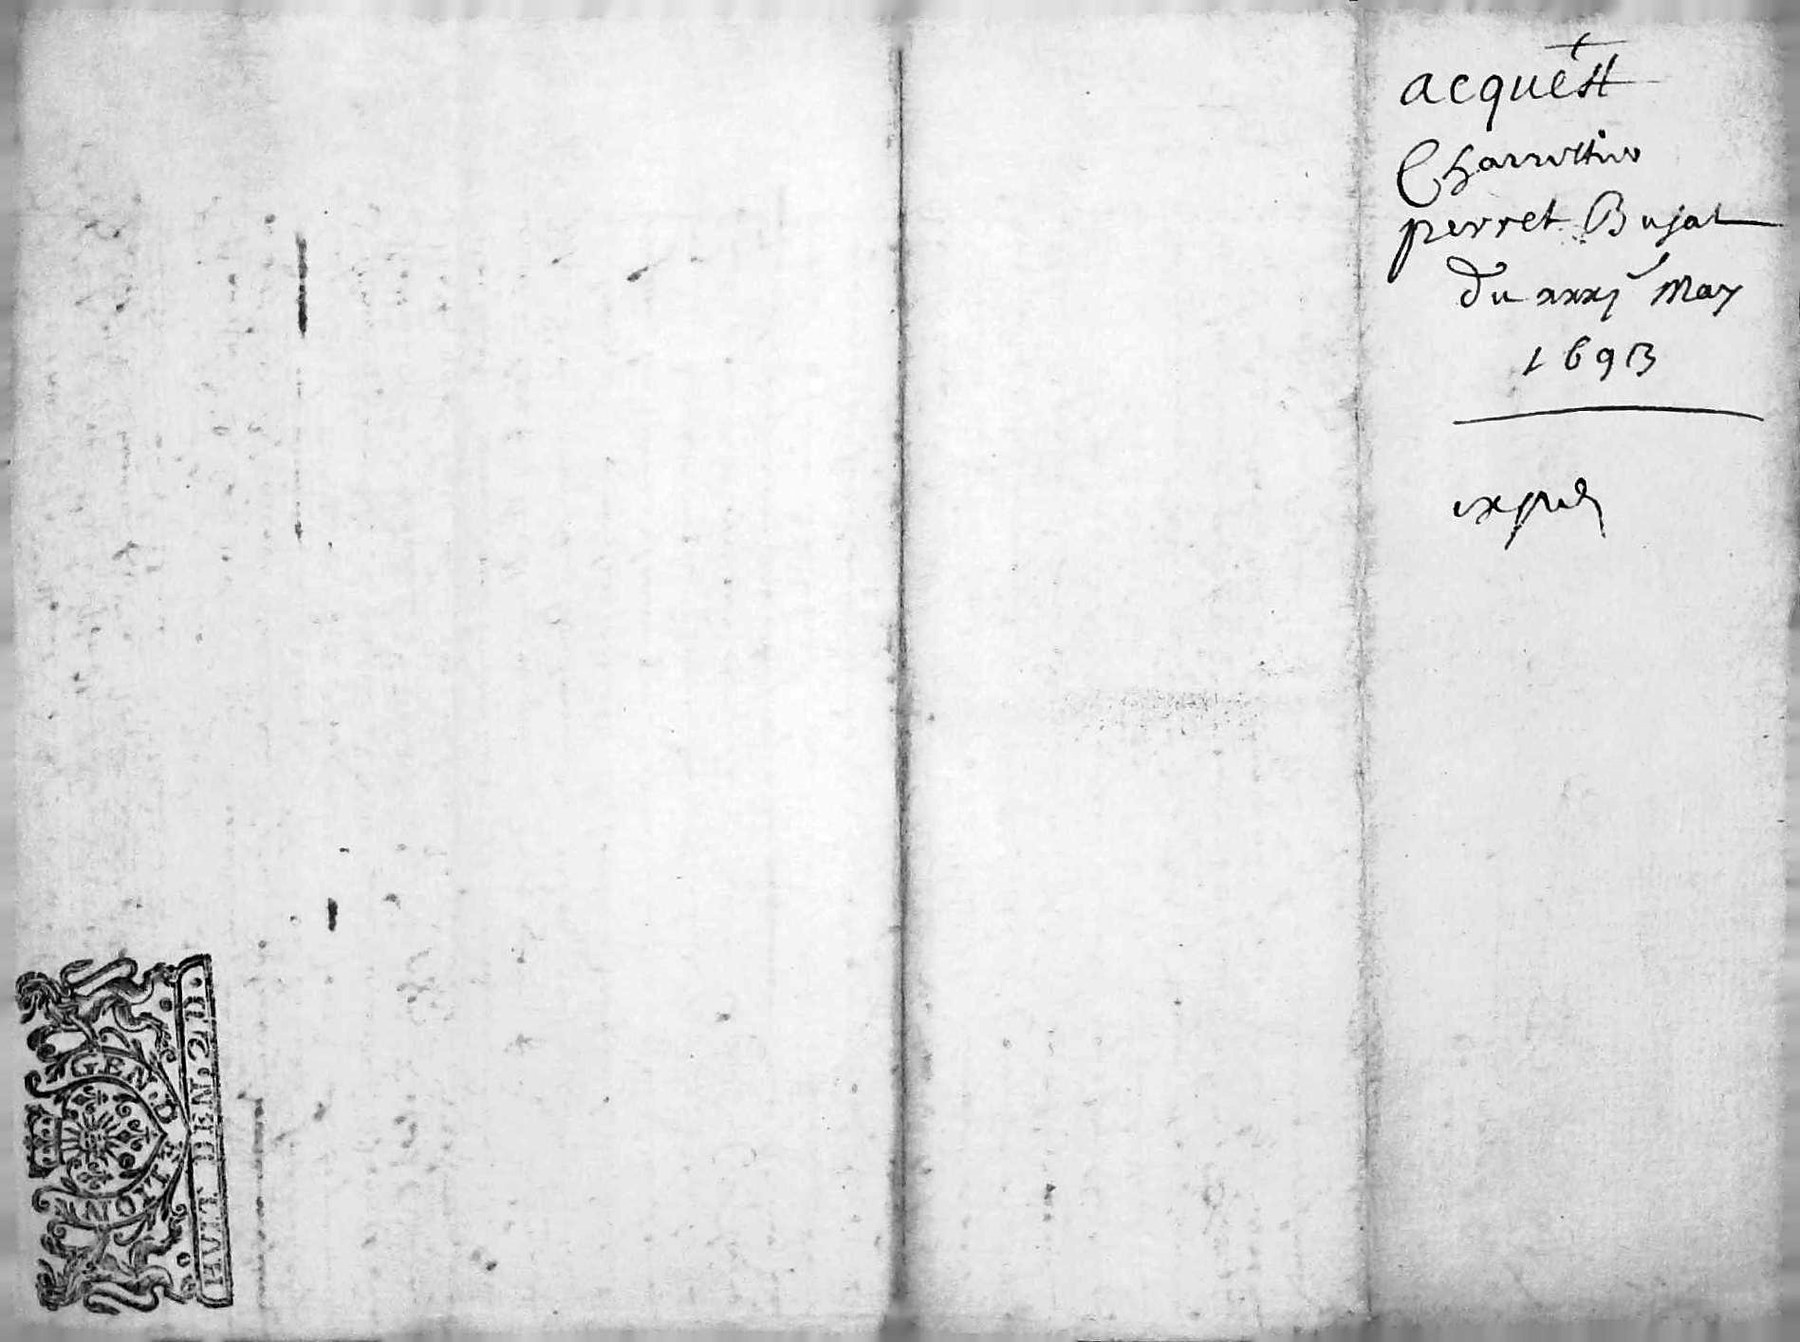 acquest
Charrettier
perret Bujat
du xxxj May
1693
expéd
GEN D NOTRE
HUIT DEN. 2 D.